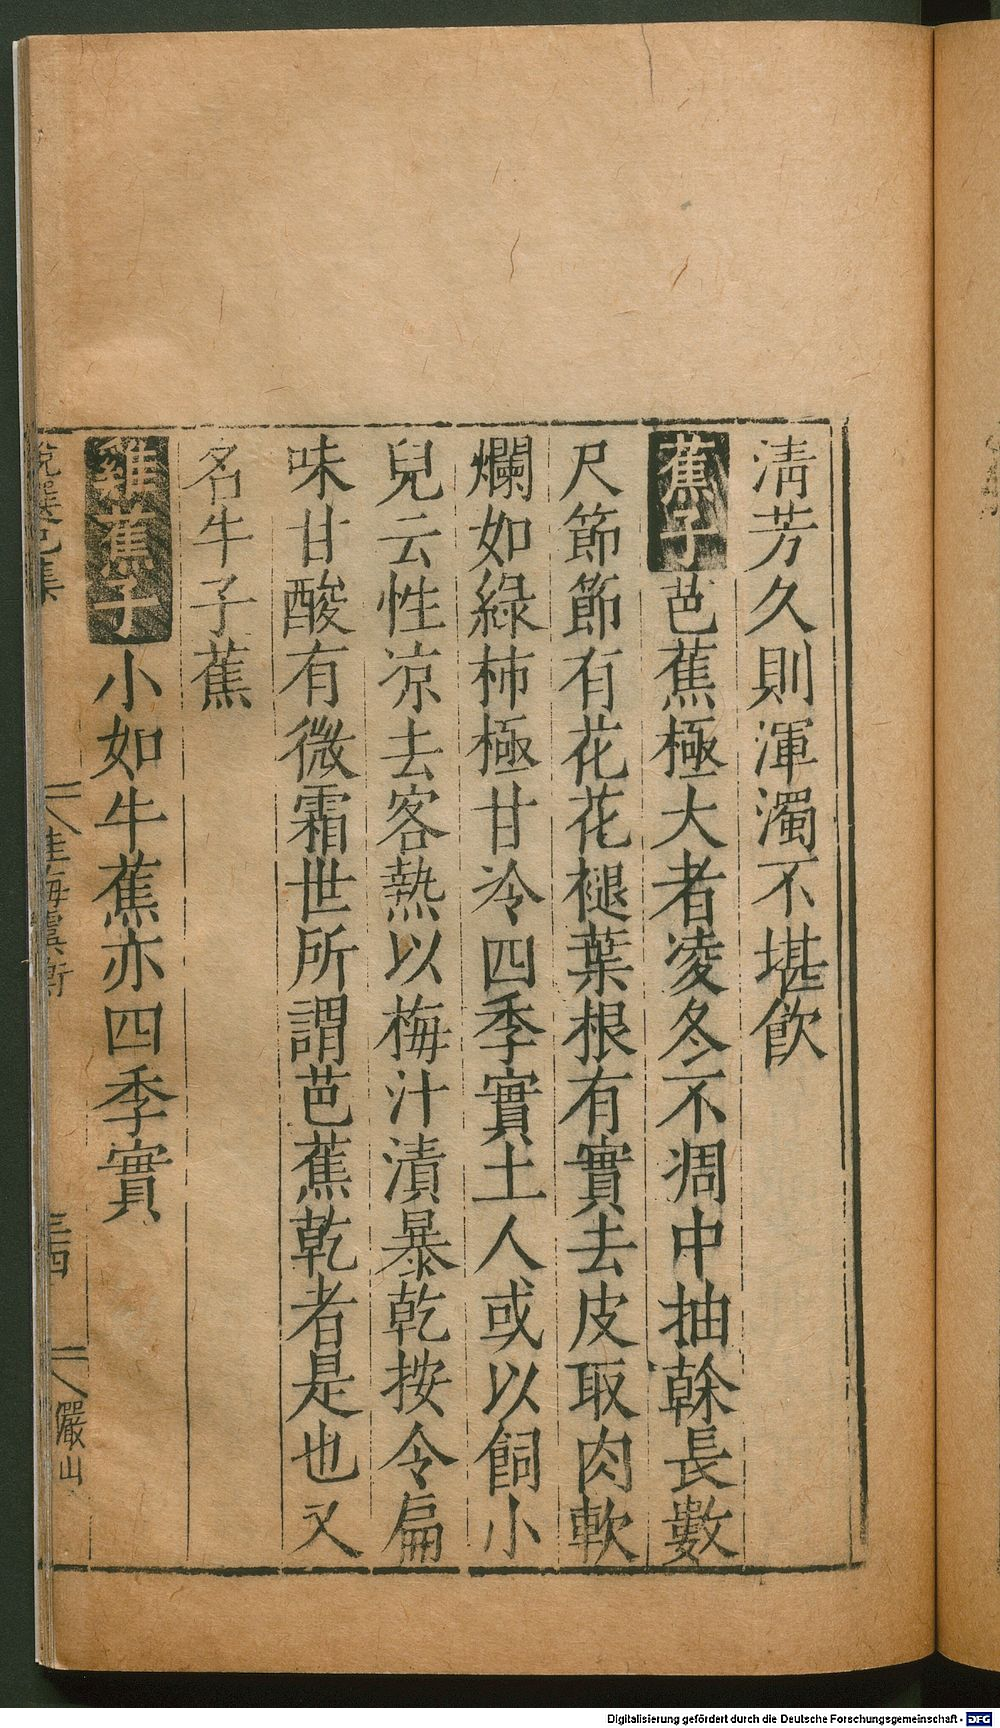 清芳久則渾濁不堪飲
蕉子芭蕉極大者凌冬不凋中抽榦長數
尺節節有花花褪葉根有實去皮取肉軟
爛如綠柿極甘冷四季實土人或以飼小
兒云性凉去客熱以梅汁漬暴乾按令扁
味甘酸有微霜世所謂芭蕉乾者是也又
名牛子蕉
雞蕉子小如牛蕉亦四季實
說選己集
桂海虞衡
三四
儼山
Digitalisierung gefördert durch die Deutsche Forschungsgemeinschaft - DFG